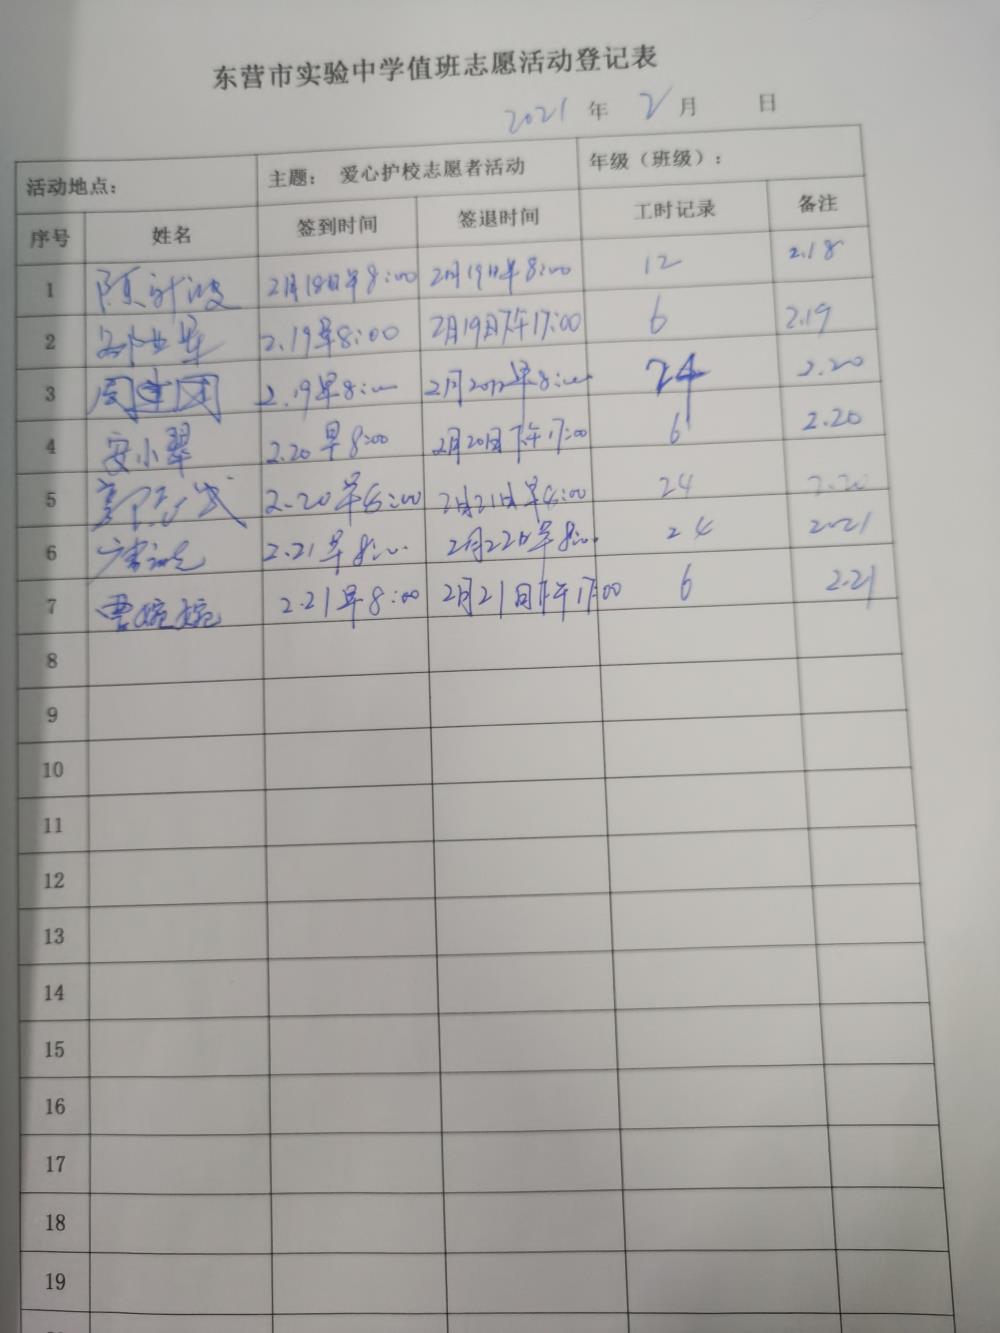 东营市实验中学值班志愿活动登记表
2021 年 2 月 日
活动地点： 主题： 爱心护校志愿者活动 年级（班级）：
序号 姓名 签到时间 签退时间 工时记录 备注
1 2月18日早8:00 2月19日早8:00 12 2.18
2 2.19早8:00 2月19日下午17:00 6 2.19
3 周建团 2.19早8:00 2月20日早8:00 24 2.20
4 安小翠 2.20早8:00 2月20日下午17:00 6 2.20
5 2.20早8:00 2月21日早8:00 24 2.20
6 2.21早8:00 2月22日早8:00 24 2021
7 曹婉婉 2.21早8:00 2月21日下午17:00 6 2.21
8
9
10
11
12
13
14
15
16
17
18
19